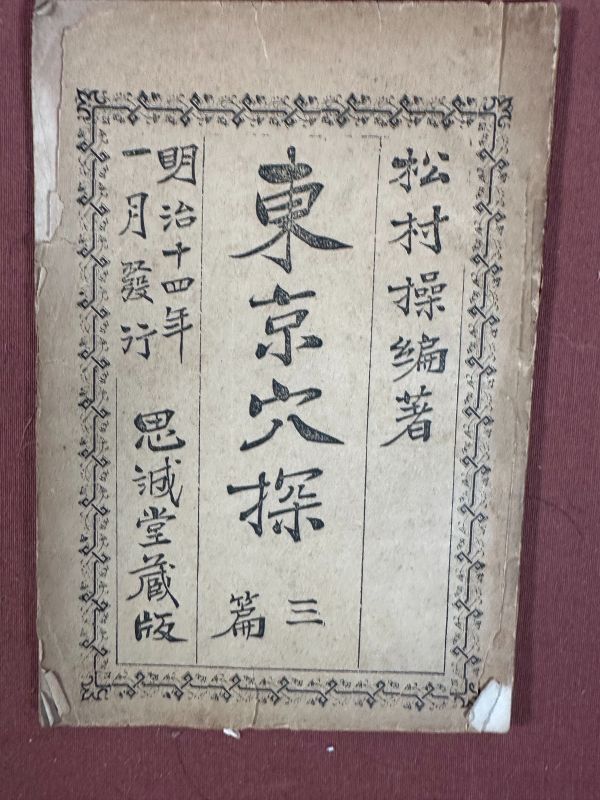 松村操編著
東京穴探
三篇
明治十四年
一月發行
思誠堂藏版